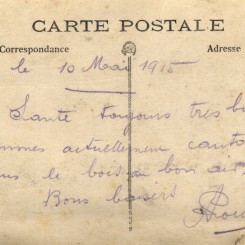 CARTE POSTALE
Correspondance Adresse
le 10 Mai 1915
Santé toujours très
actuellement
le bois au bon air
Bons baisers